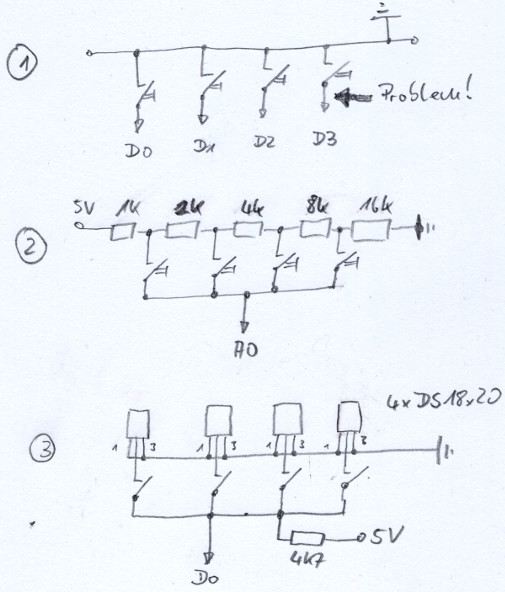 1
Problem!
D0 D1 D2 D3
5V 1k 2k 4k 8k 16k
2
A0
4xDS18x20
3
1 3 1 3 1 3 1 3
5V
4k7
D0